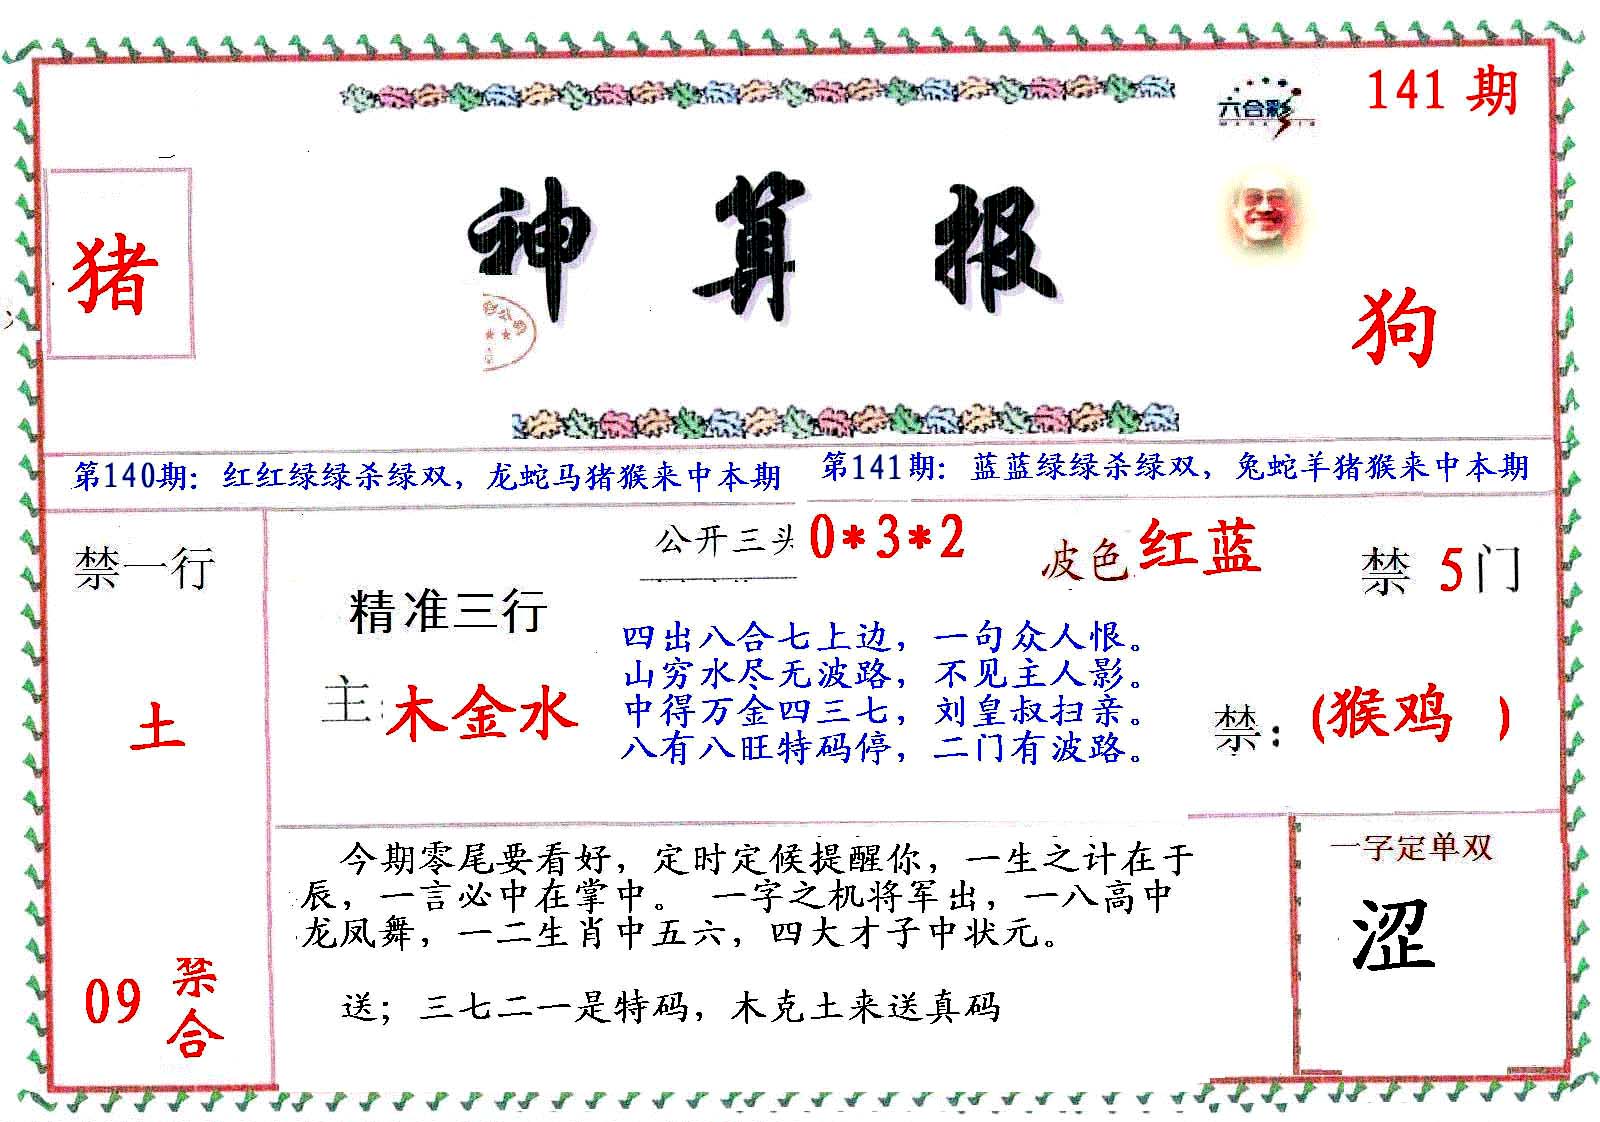 六合彩
141 期
神算报
猪
狗
第140期：红红绿绿杀绿双，龙蛇马猪猴来中本期
第141期：蓝蓝绿绿杀绿双，兔蛇羊猪猴来中本期
禁一行
土
09 禁合
公开三头 0*3*2
波色 红蓝
禁 5 门
精准三行
主: 木金水
四出八合七上边，一句众人恨。
山穷水尽无波路，不见主人影。
中得万金四三七，刘皇叔扫亲。
八有八旺特码停，二门有波路。
禁: (猴鸡 )
今期零尾要看好，定时定候提醒你，一生之计在于
辰，一言必中在掌中。 一字之机将军出，一八高中
龙凤舞，一二生肖中五六，四大才子中状元。
送；三七二一是特码，木克土来送真码
一字定单双
涩